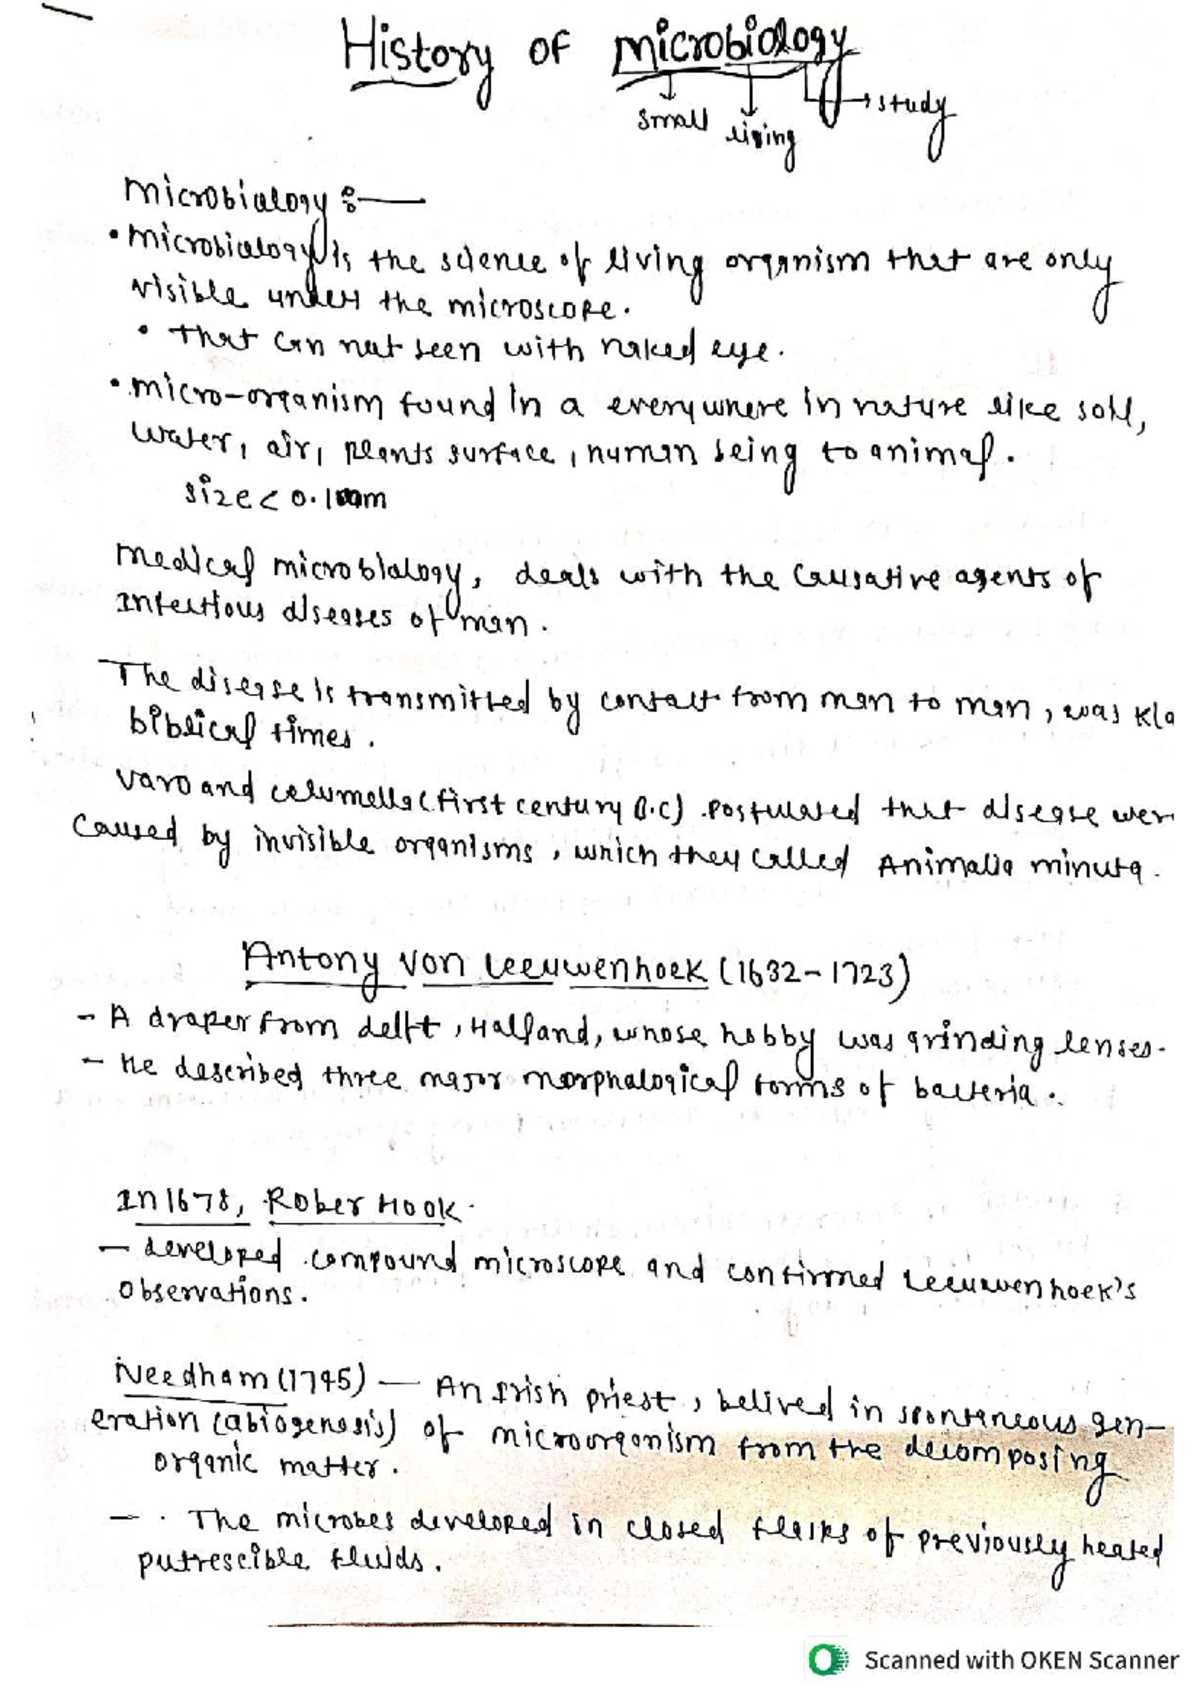 History of microbiology
small living → study
microbiology :-
• microbiology is the science of living organism that are only
visible under the microscope.
• that can not seen with naked eye.
• micro-organism found in a everywhere in nature like soil,
water, air, plants surface, human being to animal.
size < 0.1mm
medical microbiology, deals with the causative agents of
infectious diseases of man.
The disease is transmitted by contact from man to man, was
biblical times.
varo and columella (first century B.C) postulated that disease wer
caused by invisible organisms, which they called Animalia minuta.
Antony von Leeuwenhoek (1632-1723)
- A draper from delft, Holland, whose hobby was grinding lenses.
- He described three major morphological forms of bacteria.
In 1678, Rober Hook.
- developed compound microscope and confirmed Leeuwenhoek's
observations.
Needham (1745) - An Irish priest, belived in spontaneous gen-
eration (abiogenosis) of microorganism from the decomposing
organic matter.
- . The microbes developed in closed flasks of previously heated
putrescible fluids.
Scanned with OKEN Scanner